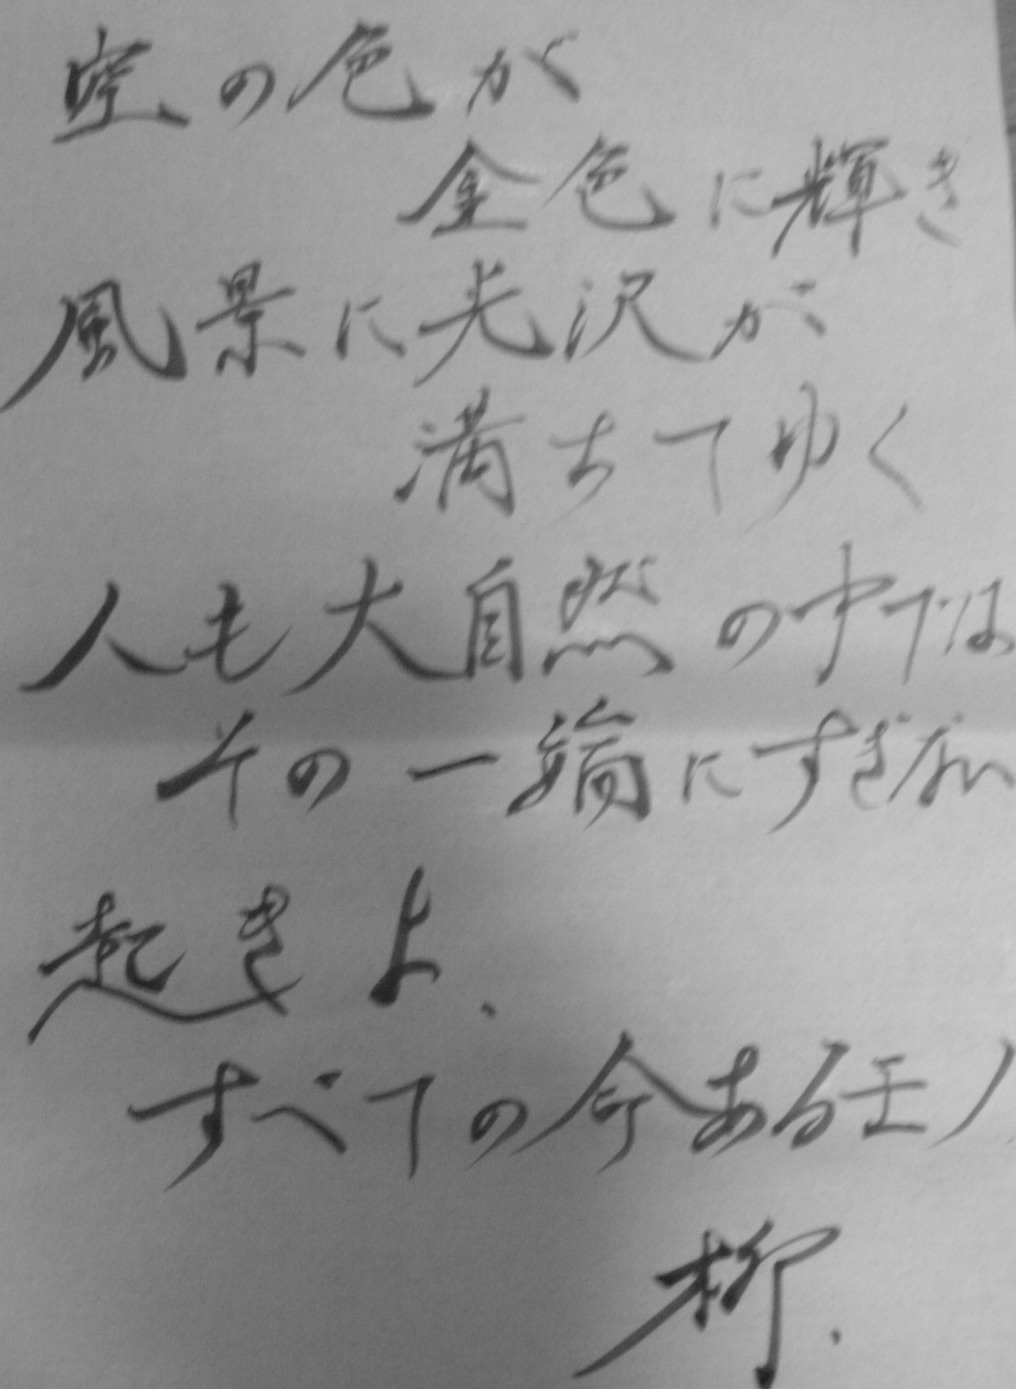 空の色が
金色に輝き
風景に光沢が
満ちてゆく
人も大自然の中では
その一端にすぎない
起きよ、
すべての今あるモノ
柳.